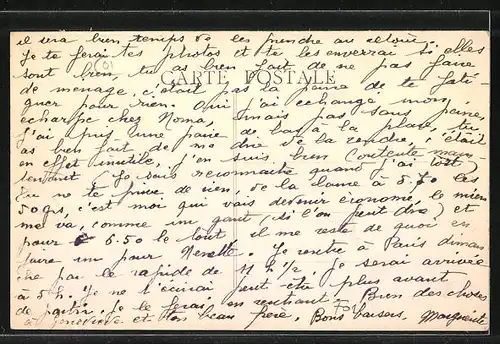 il sera bien temps de les prendre au retour.
Je te ferai tes photos et tu les enverrai si elles
sont bien, tu as bien fait de ne pas faire
CARTE POSTALE
de menage, c'était pas la peine de te fati-
guer pour rien. Oui j'ai echangé mon
echarpe chez Noma, mais pas sans peine,
j'ai pris une paire de bas à la place, tu
as bien fait de me dire de la rendre, c'était
en effet inutile, j'en suis bien contente main-
tenant (Je sais reconnaitre quand j'ai tort)
Tu ne te prive de rien, de la laine à 5.70 les
50 grs, c'est moi qui vais devenir econome, le mien
me va, comme un gant (si l'on peut dire) et
pour 6.50 le tout il me reste de quoi en
faire un pour Nenette. Je rentre à Paris diman-
che par le rapide de 11 h 1/2. Je serai arrivée
à 5 h. Je ne t'ecrirai peut être plus avant
de partir, je le ferai en rentrant. Bien des choses
à Genevieve et ton beau frère, Bons baisers, Marguerite